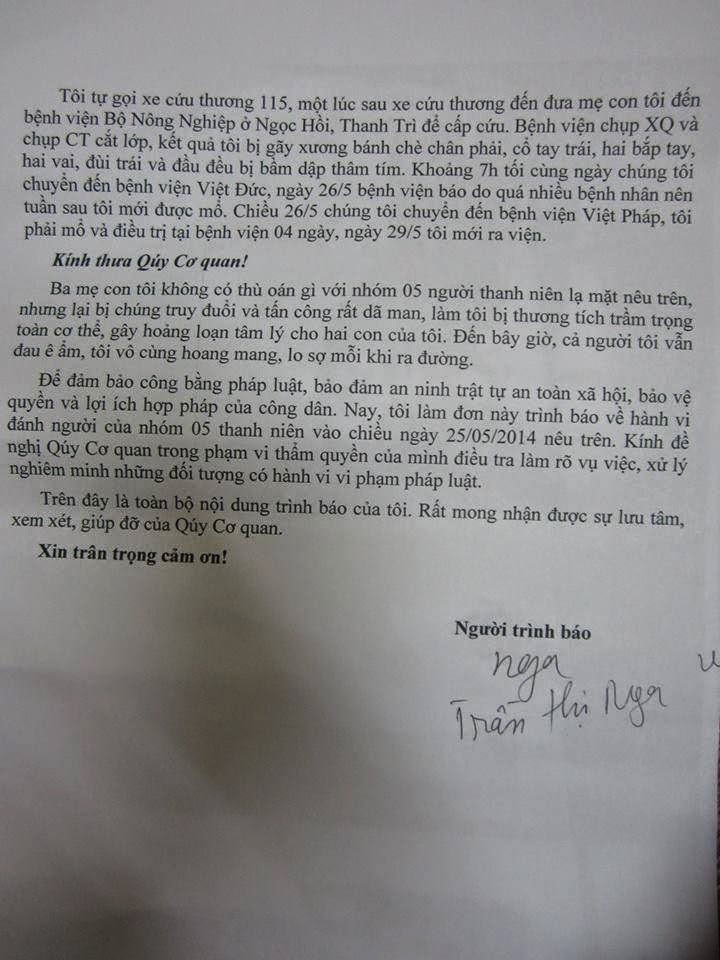 Tôi tự gọi xe cứu thương 115, một lúc sau xe cứu thương đến đưa mẹ con tôi đến
bệnh viện Bộ Nông Nghiệp ở Ngọc Hồi, Thanh Trì để cấp cứu. Bệnh viện chụp XQ và
chụp CT cắt lớp, kết quả tôi bị gãy xương bánh chè chân phải, cổ tay trái, hai bắp tay,
hai vai, đùi trái và đầu đều bị bầm dập thâm tím. Khoảng 7h tối cùng ngày chúng tôi
chuyển đến bệnh viện Việt Đức, ngày 26/5 bệnh viện báo do quá nhiều bệnh nhân nên
tuần sau tôi mới được mổ. Chiều 26/5 chúng tôi chuyển đến bệnh viện Việt Pháp, tôi
phải mổ và điều trị tại bệnh viện 04 ngày, ngày 29/5 tôi mới ra viện.
Kính thưa Qúy Cơ quan!
Ba mẹ con tôi không có thù oán gì với nhóm 05 người thanh niên lạ mặt nêu trên,
nhưng lại bị chúng truy đuổi và tấn công rất dã man, làm tôi bị thương tích trầm trọng
toàn cơ thể, gây hoảng loạn tâm lý cho hai con của tôi. Đến bây giờ, cả người tôi vẫn
đau ê ẩm, tôi vô cùng hoang mang, lo sợ mỗi khi ra đường.
Để đảm bảo công bằng pháp luật, bảo đảm an ninh trật tự an toàn xã hội, bảo vệ
quyền và lợi ích hợp pháp của công dân. Nay, tôi làm đơn này trình báo về hành vi
đánh người của nhóm 05 thanh niên vào chiều ngày 25/05/2014 nêu trên. Kính đề
nghị Qúy Cơ quan trong phạm vi thẩm quyền của mình điều tra làm rõ vụ việc, xử lý
nghiêm minh những đối tượng có hành vi vi phạm pháp luật.
Trên đây là toàn bộ nội dung trình báo của tôi. Rất mong nhận được sự lưu tâm,
xem xét, giúp đỡ của Qúy Cơ quan.
Xin trân trọng cảm ơn!
Người trình báo
nga
Trần Thị Nga